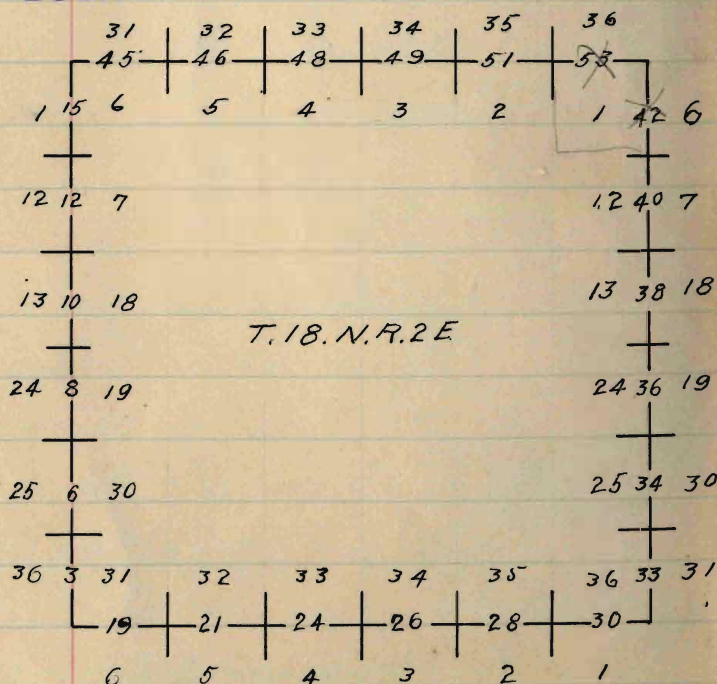 31 32 33 34 35 36
45 46 48 49 51 53
1 15 6 5 4 3 2 1 42 6
12 12 7 12 40 7
13 10 18 13 38 18
T.18.N.R.2E
24 8 19 24 36 19
25 6 30 25 34 30
36 3 31 32 33 34 35 36 33 31
19 21 24 26 28 30
6 5 4 3 2 1